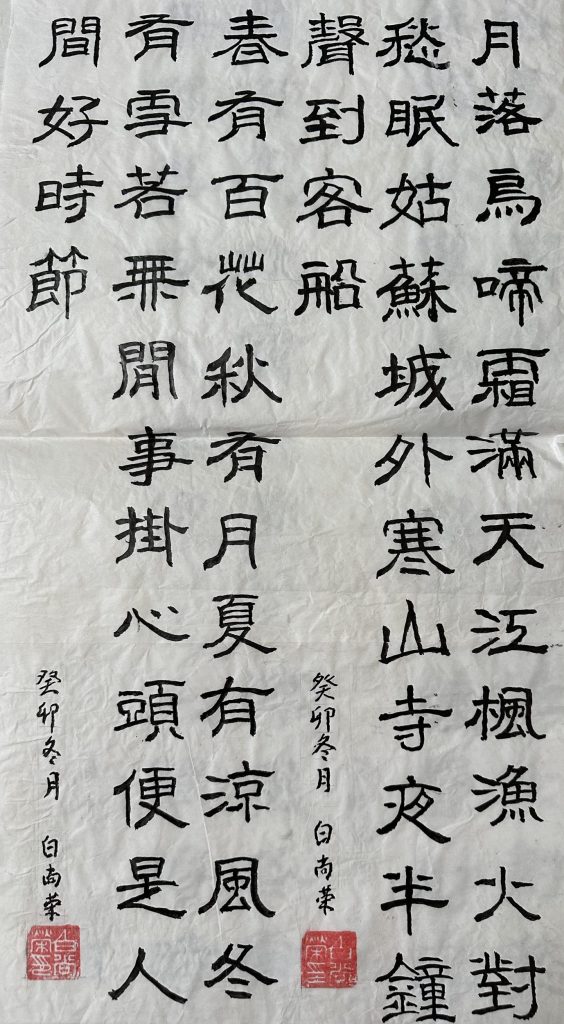 月落烏啼霜滿天江楓漁火對
愁眠姑蘇城外寒山寺夜半鐘
聲到客船
癸卯冬月 白尚荣
白尚荣印
春有百花秋有月夏有涼風冬
有雪若無閒事掛心頭便是人
間好時節
癸卯冬月 白尚荣
白尚荣印